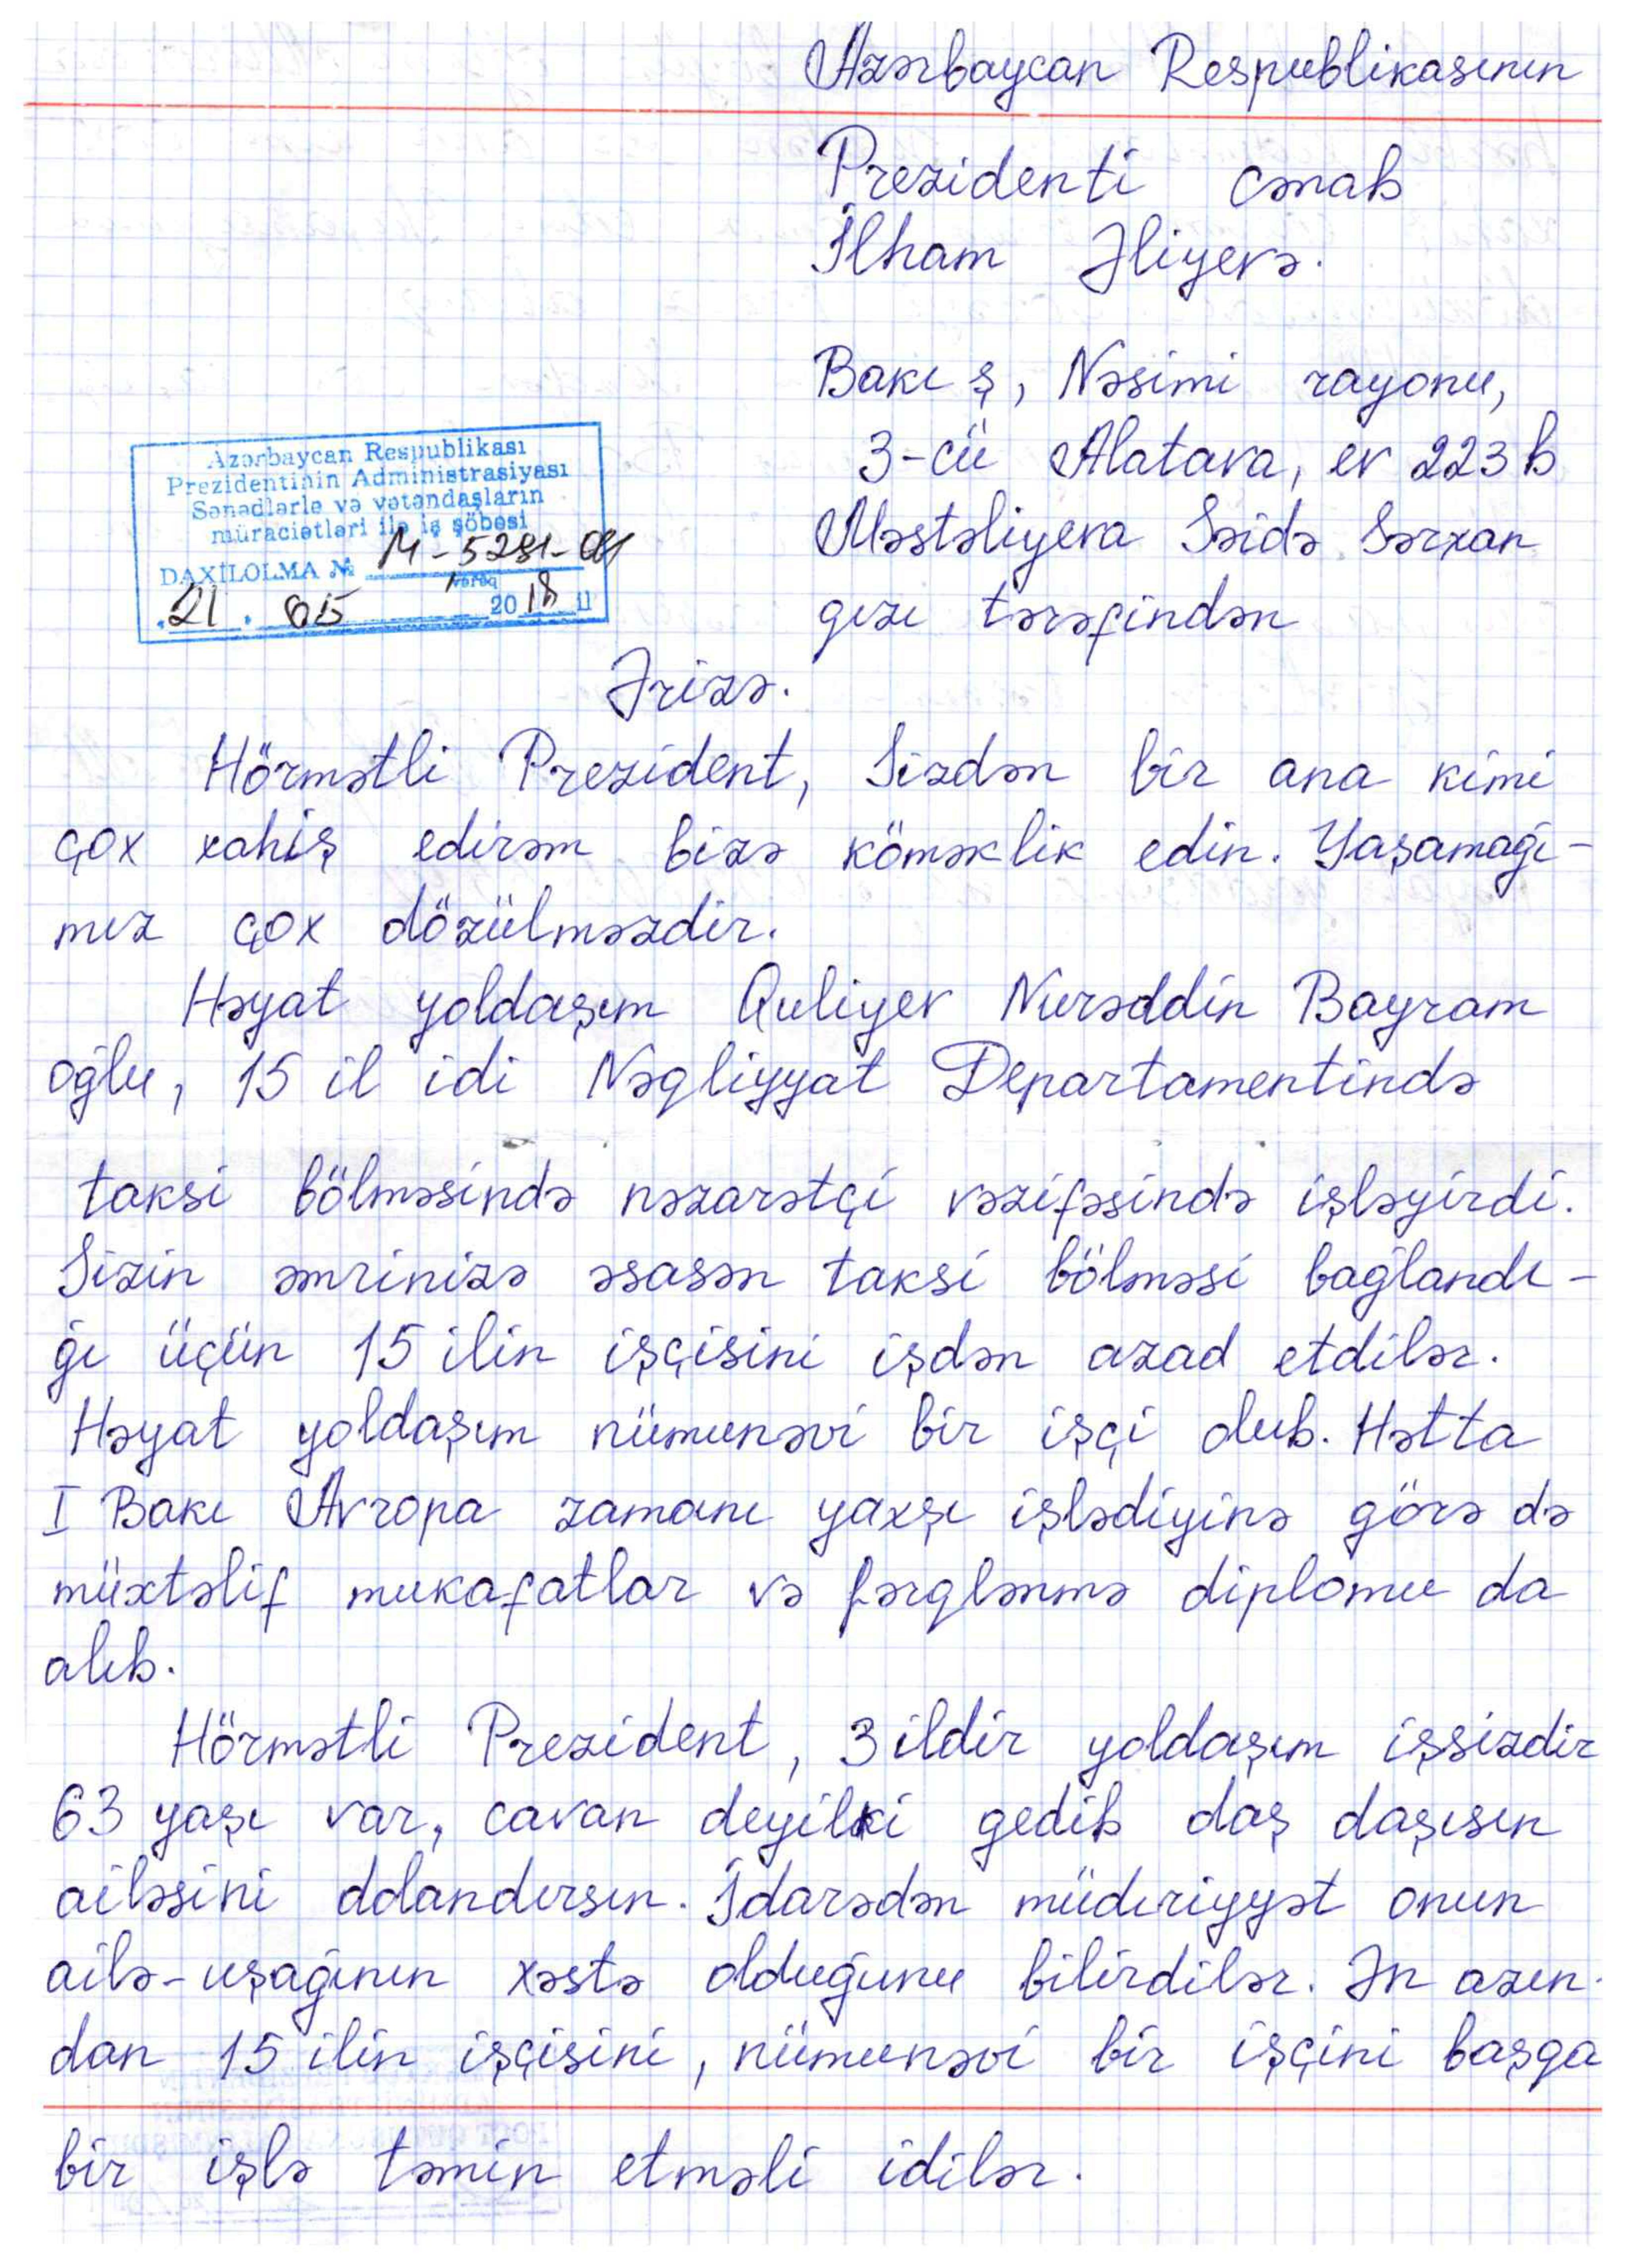 Azərbaycan Respublikasının
Prezidenti cənab
İlham Əliyevə.
Bakı ş, Nəsimi rayonu,
3-cü Alatava, ev 223 b
Məstəliyeva Səidə Sərxan
qızı tərəfindən
Azərbaycan Respublikası
Prezidentinin Administrasiyası
Sənədlərlə və vətəndaşların
müraciətləri ilə iş şöbəsi
DAXİLOLMA №
vərəq
21. 05 2018 il
Ərizə.
Hörmətli Prezident, Sizdən bir ana kimi
çox xahiş edirəm bizə köməklik edin. Yaşamağı-
mız çox dözülməzdir.
Həyat yoldaşım Quliyev Nurəddin Bayram
oğlu, 15 il idi Nəqliyyat Departamentində
taksi bölməsində nəzarətçi vəzifəsində işləyirdi.
Sizin əmrinizə əsasən taksi bölməsi bağlandı-
ğı üçün 15 ilin işçisini işdən azad etdilər.
Həyat yoldaşım nümunəvi bir işçi olub. Hətta
I Bakı Avropa zamanı yaxşı işlədiyinə görə də
müxtəlif mukafatlar və fərqlənmə diplomu da
alıb.
Hörmətli Prezident, 3 ildir yoldaşım işsizdir
63 yaşı var, cavan deyilki gedib daş daşısın
ailəsini dolandırsın. İdarədən müdiriyyət onun
ailə-uşağının xəstə olduğunu bilirdilər. Ən azın-
dan 15 ilin işçisini, nümunəvi bir işçini başqa
bir işlə təmin etməli idilər.